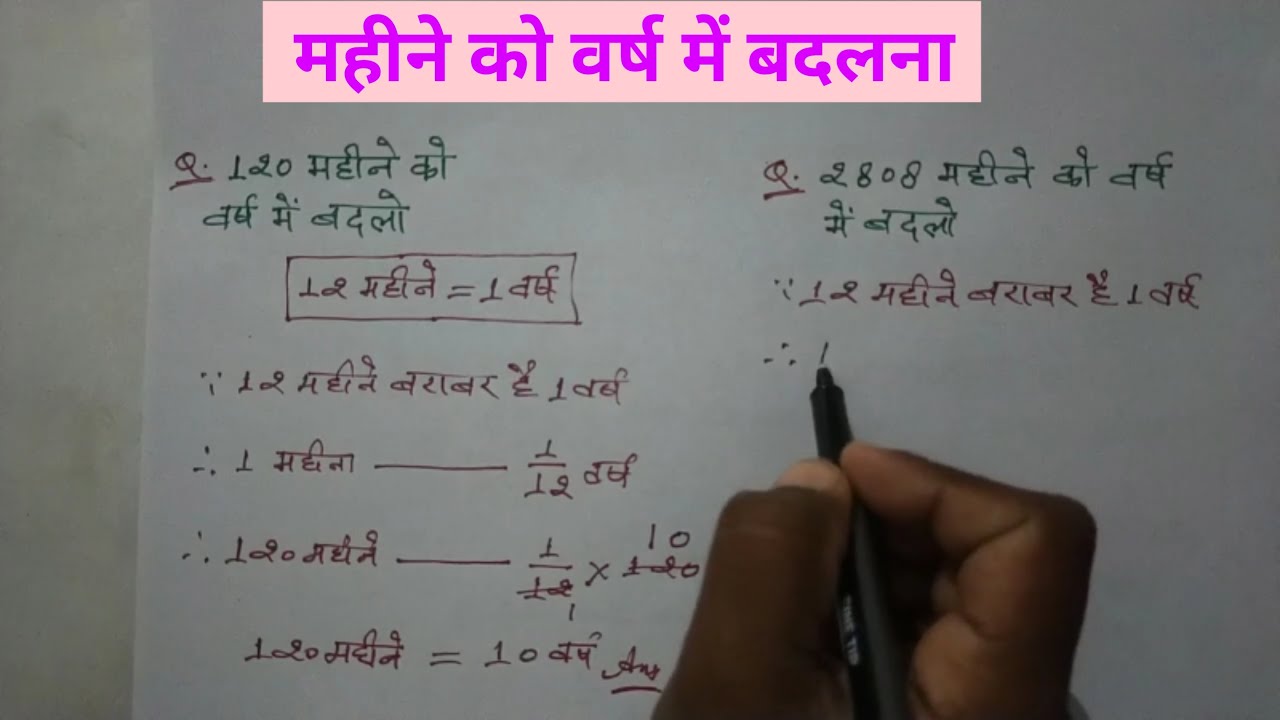 महीने को वर्ष में बदलना
Q. 120 महीने को
वर्ष में बदलो
12 महीने = 1 वर्ष
∵ 12 महीने बराबर है 1 वर्ष
∴ 1 महीना —— 1/12 वर्ष
∴ 120 महीने —— 1/12 × 120
10
1
120 महीने = 10 वर्ष Ans
Q. 2808 महीने को वर्ष
में बदलो
∵ 12 महीने बराबर है 1 वर्ष
∴ 1
TIP